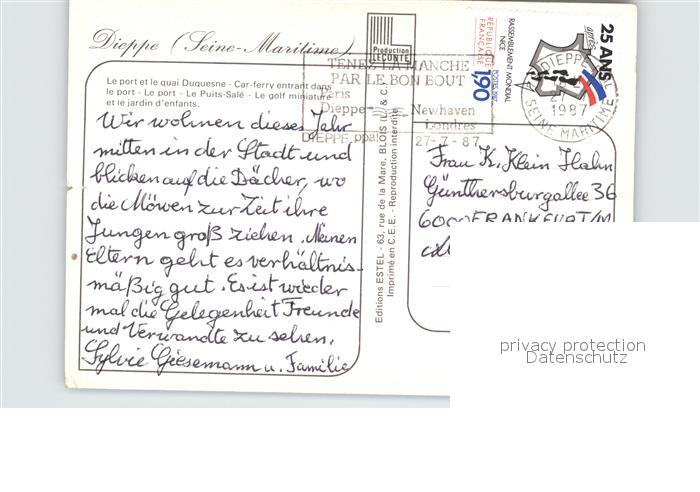 Dieppe (Seine-Maritime)
Production
LECONTE
Le port et le quai Duquesne - Car-ferry entrant dans
le port - Le port - Le Puits-Salé - Le golf miniature
et le jardin d'enfants.
Wir wohnen dieses Jahr
mitten in der Stadt und
blicken auf die Dächer, wo
die Möwen zur Zeit ihre
Jungen groß ziehen. Meinen
Eltern geht es verhältnis-
mäßig gut. Es ist wieder
mal die Gelegenheit Freunde
und Verwandte zu sehen.
Sylvie Giesemann u. Familie
Editions ESTEL - 63, rue de la Mare, BLOIS (L. & C.)
Imprimé en C.E.E. - Reproduction interdite
TENEZ LA MANCHE
PAR LE BON BOUT
Paris
Dieppe
Newhaven
Londres
DIEPPE ppal
27-7-87
REPUBLIQUE
FRANÇAISE
1,90
POSTES 1987
RASSEMBLEMENT MONDIAL
NICE
25 ANS
après
DIEPPE
1987
SEINE MARITIME
Frau K. Klein Hahn
Günthersburgallee 36
6000 FRANKFURT/M
privacy protection
Datenschutz